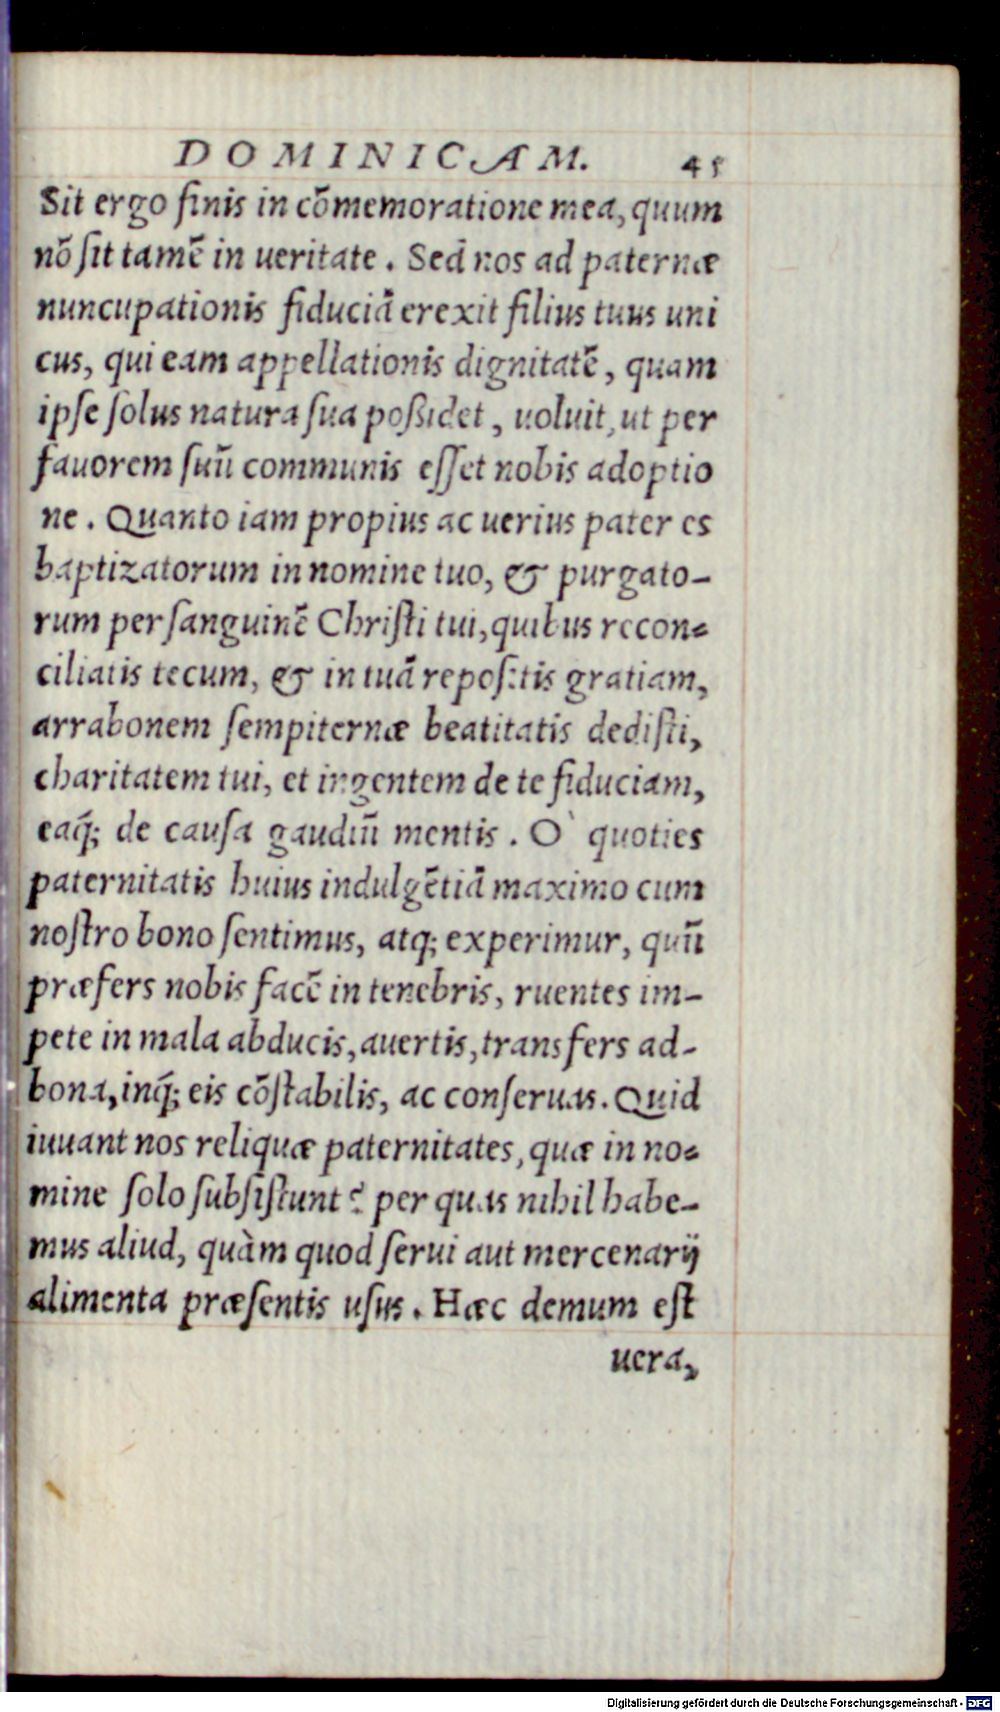 DOMINICAM. 45
Sit ergo finis in cõmemoratione mea, quum
nõ sit tamẽ in ueritate. Sed nos ad paternæ
nuncupationis fiduciã erexit filius tuus uni
cus, qui eam appellationis dignitatẽ, quam
ipse solus natura sua poßidet, uoluit, ut per
fauorem suũ communis esset nobis adoptio
ne. Quanto iam propius ac uerius pater es
baptizatorum in nomine tuo, & purgato-
rum per sanguinẽ Christi tui, quibus recon-
ciliatis tecum, & in tuã repositis gratiam,
arrabonem sempiternæ beatitatis dedisti,
charitatem tui, et ingentem de te fiduciam,
eaq̃; de causa gaudiũ mentis. O` quoties
paternitatis huius indulgẽtiã maximo cum
nostro bono sentimus, atq; experimur, quũ
præfers nobis facẽ in tenebris, ruentes im-
pete in mala abducis, auertis, transfers ad-
bona, inq̃; eis cõstabilis, ac conseruas. Quid
iuuant nos reliquæ paternitates, quæ in no-
mine solo subsistunt? per quas nihil habe-
mus aliud, quàm quod serui aut mercenarij
alimenta præsentis usus. Hæc demum est
uera,
Digitalisierung gefördert durch die Deutsche Forschungsgemeinschaft - DFG